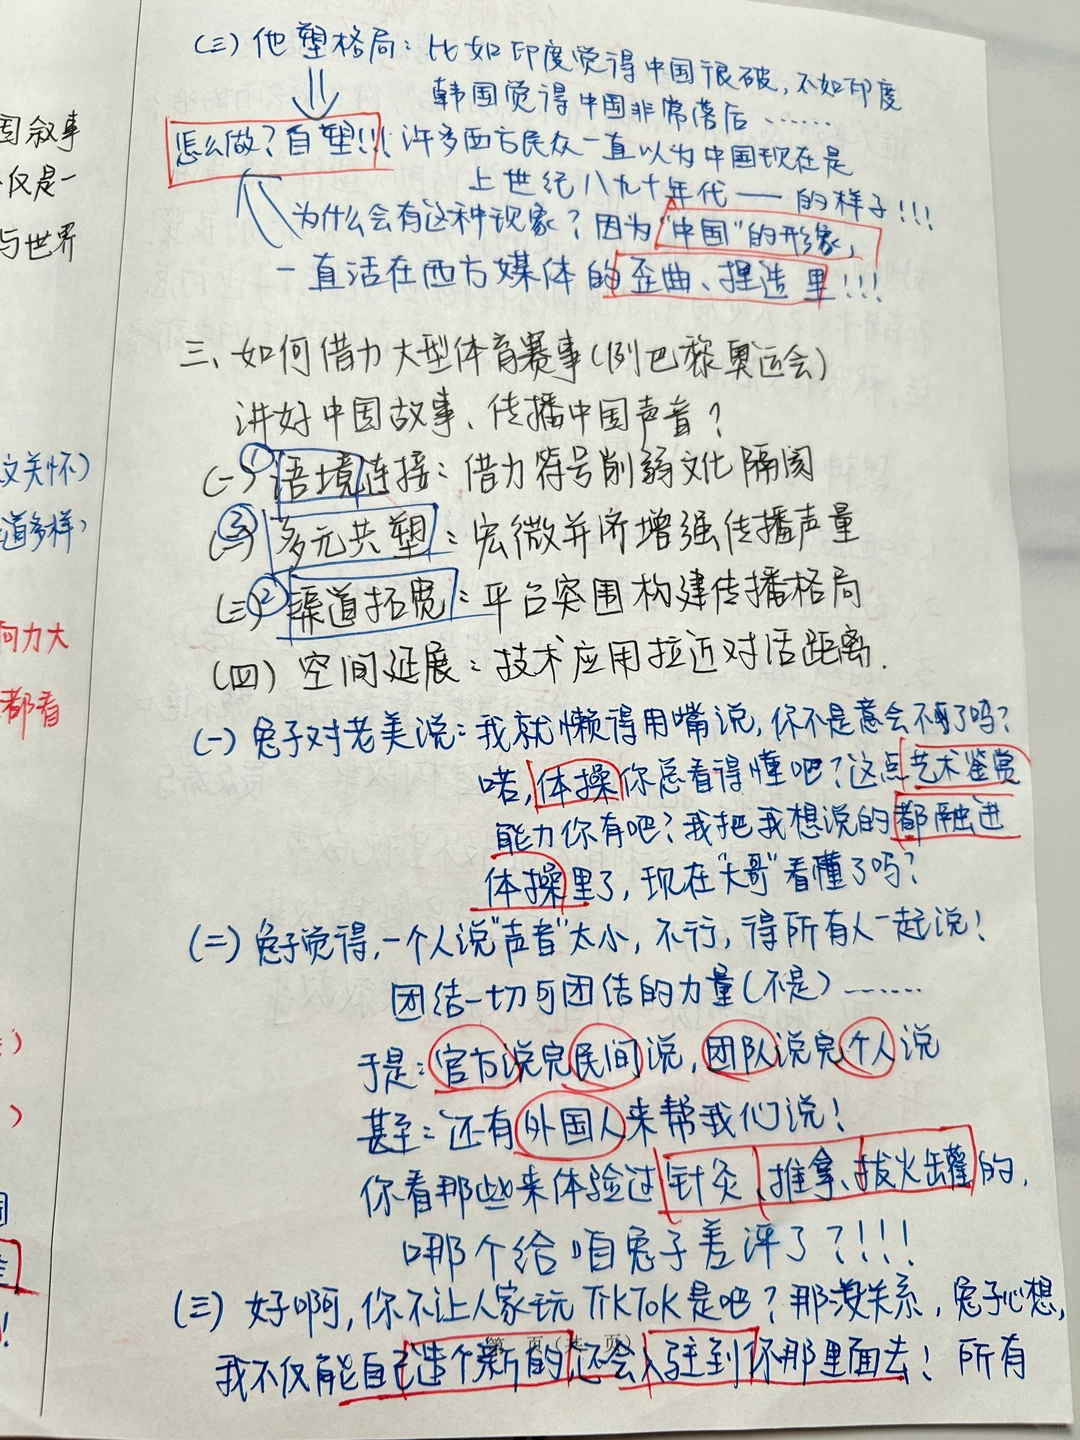 (三)他塑格局：比如印度觉得中国很破，不如印度
韩国觉得中国非常落后……
怎么做？自塑!!! 许多西方民众一直以为中国现在是
上世纪八九十年代——的样子!!!
为什么会有这种现象？因为"中国"的形象，
一直活在西方媒体的歪曲、捏造里!!!
三、如何借力大型体育赛事(例巴黎奥运会)
讲好中国故事、传播中国声音？
(一)①语境连接：借力符号削弱文化隔阂
(二)③多元共塑：宏微并济增强传播声量
(三)②渠道拓宽：平台突围构建传播格局
(四)空间延展：技术应用拉近对话距离.
(一)兔子对老美说：我就懒得用嘴说，你不是意会不了吗？
喏，体操你总看得懂吧？这点艺术鉴赏
能力你有吧？我把我想说的都融进
体操里了，现在"大哥"看懂了吗？
(二)兔子觉得，一个人说"声音"太小，不行，得所有人一起说！
团结一切可团结的力量(不是)……
于是：官方说完民间说，团队说完个人说
甚至：还有外国人来帮我们说！
你看那些来体验过针灸、推拿、拔火罐的，
哪个给咱兔子差评了？!!!
(三)好啊，你不让人家玩TikTok是吧？那没关系，兔子心想，
第 页(共 页)
我不仅能自己造个新的还会入驻到你那里面去！所有
国叙事
仅是一
与世界
文关怀)
道多样，
何力大
都看